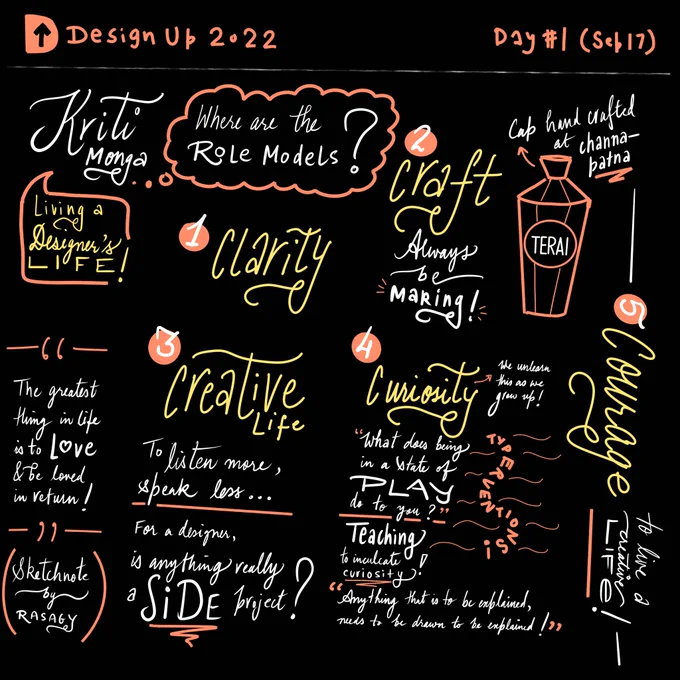 Design Up 2022
Day #1 (Sep 17)
Kriti
Monga
Where are the
Role Models?
Living a
Designer's
LIFE!
1
Clarity
2
Craft
Always
be
Making!
Cap hand crafted
at channa-
patna
TERAI
3
Creative
Life
To listen more,
speak less...
For a designer,
is anything really
a SiDE project?
4
Curiosity
We unlearn
this as we
grow up!
"What does being
in a state of
PLAY
do to you?"
TYPERVENTIONS!
Teaching
to inculcate
curiosity!
"Anything that is to be explained,
needs to be drawn to be explained!"
5
Courage
to live a
creative
LIFE!
“
The greatest
thing in life
is to Love
& be loved
in return!
”
Sketchnote
by
RASAGY